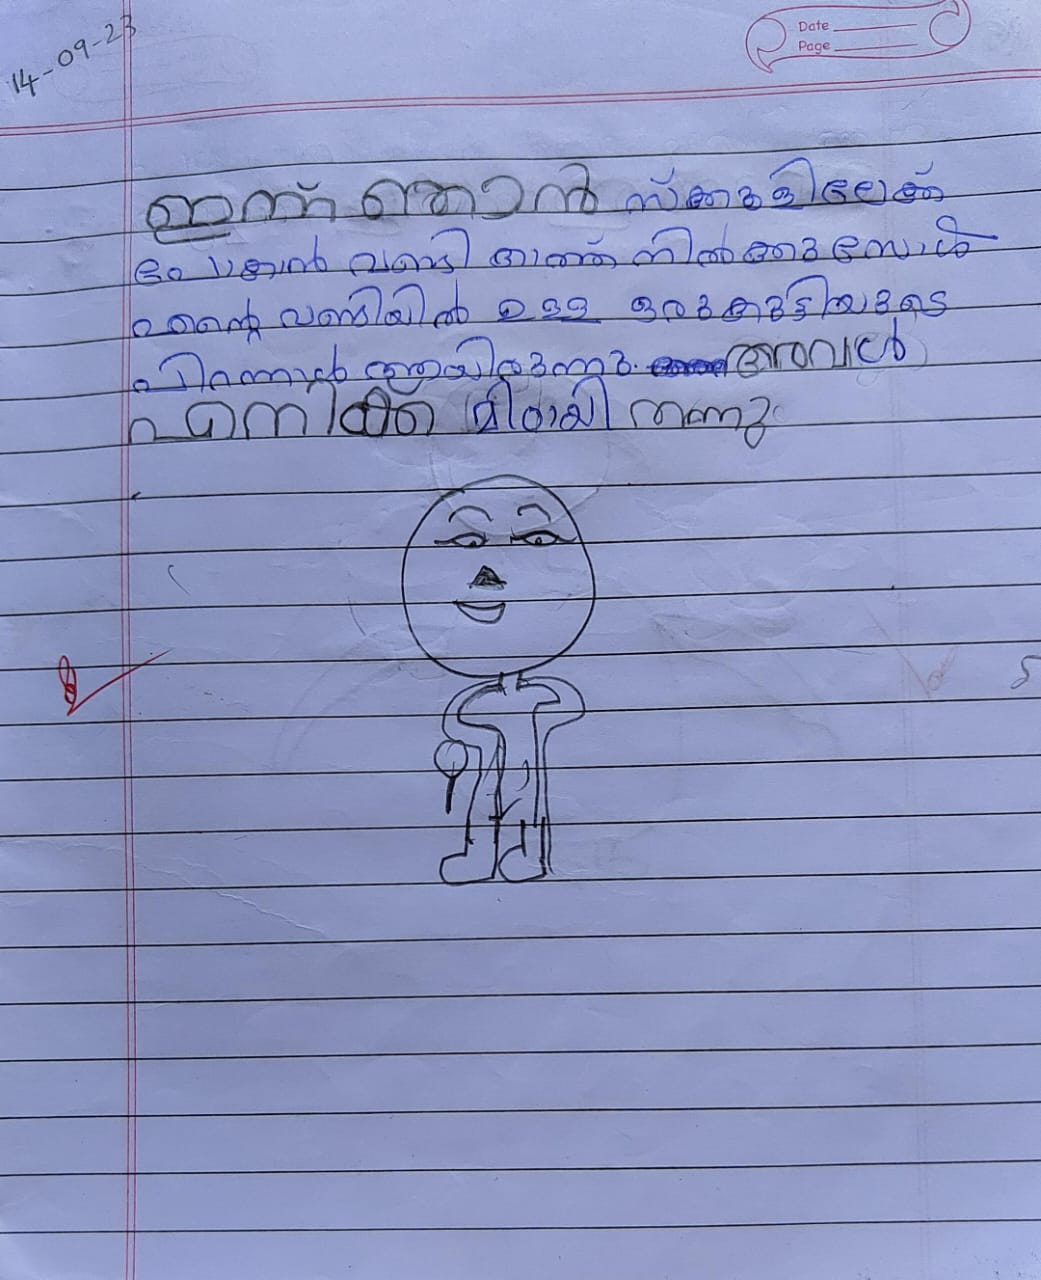 14-09-23
Date
Page
ഇന്ന് ഞാൻ സ്കൂളിലേക്ക്
പോകാൻ വണ്ടി കാത്ത് നിൽക്കുമ്പോൾ
എന്റെ വണ്ടിയിൽ ഉള്ള ഒരുകുട്ടിയുടെ
പിറന്നാൾ ആയിരുന്നു. അവൾ
എനിക്ക് മിഠായി തന്നു